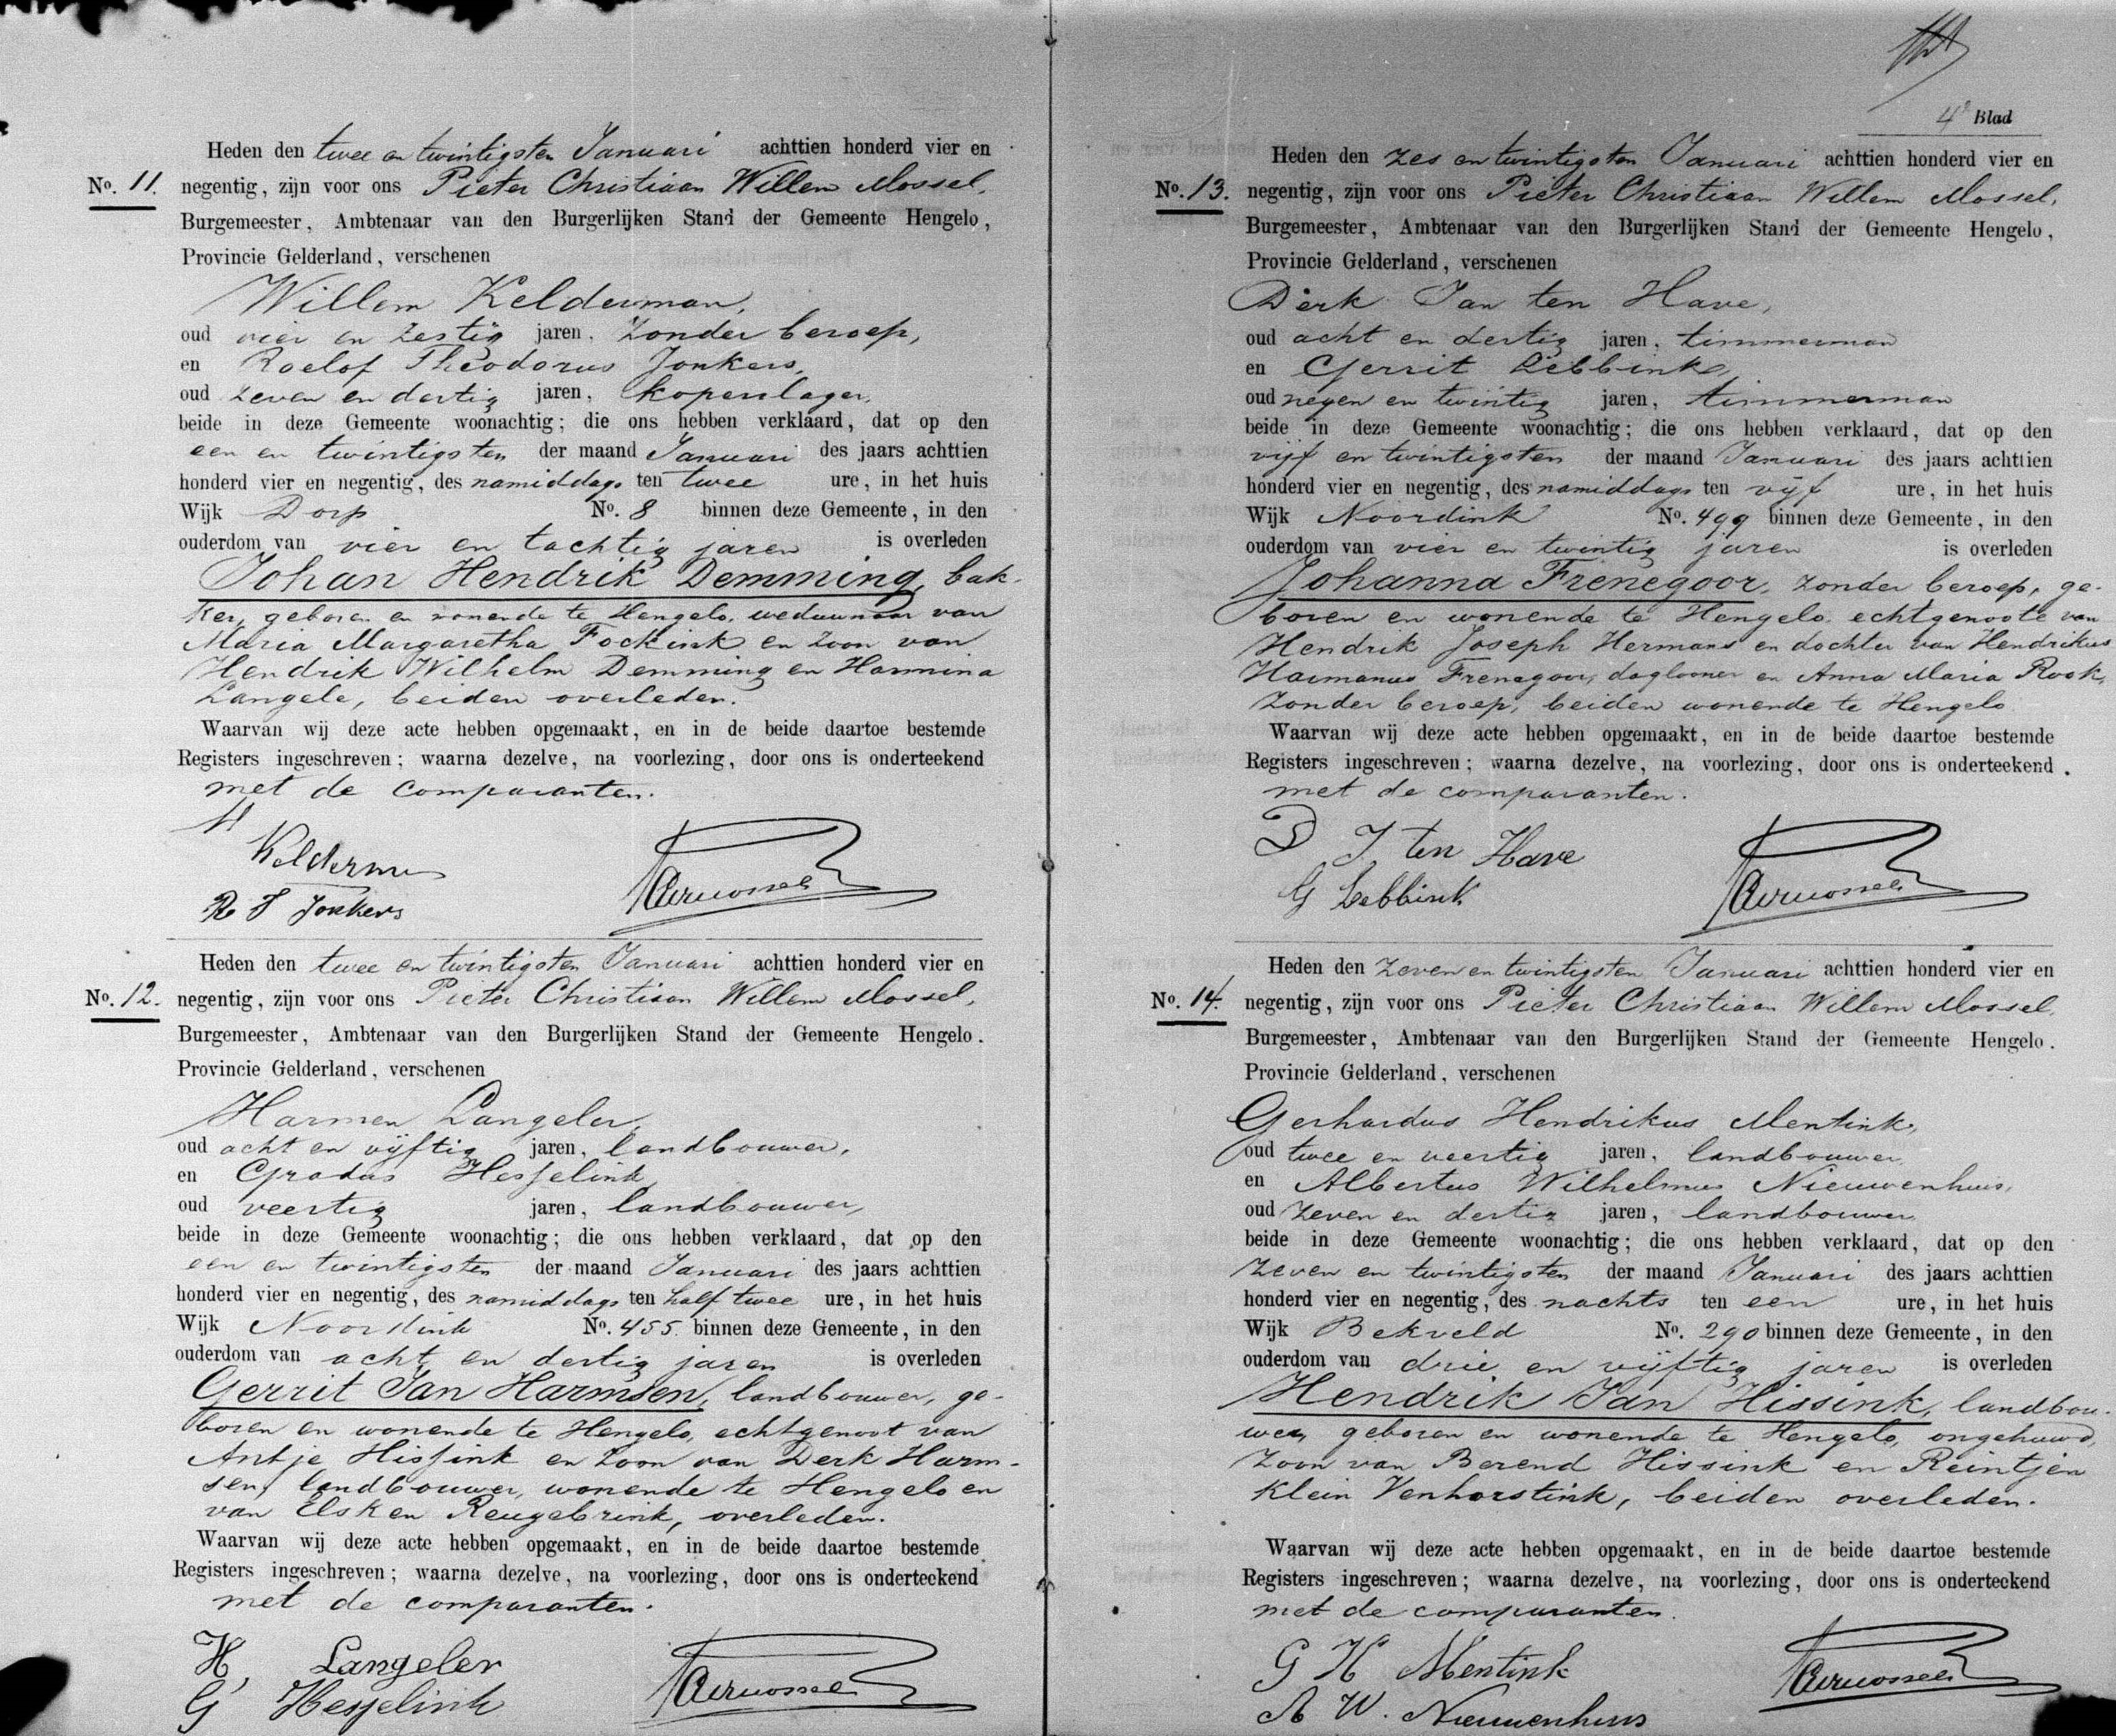 Heden den twee en twintigsten Januari achttien honderd vier en
No. 11. negentig, zijn voor ons Pieter Christiaan Willem Mossel,
Burgemeester, Ambtenaar van den Burgerlijken Stand der Gemeente Hengelo,
Provincie Gelderland, verschenen
Willem Kelderman,
oud vier en zestig jaren, zonder beroep,
en Roelof Theodorus Jonkers,
oud zeven en dertig jaren, koperslager,
beide in deze Gemeente woonachtig; die ons hebben verklaard, dat op den
een en twintigsten der maand Januari des jaars achttien
honderd vier en negentig, des namiddags ten twee ure, in het huis
Wijk Dorp No. 8 binnen deze Gemeente, in den
ouderdom van vier en tachtig jaren is overleden
Johan Hendrik Demming, bak-
ker, geboren en wonende te Hengelo, weduwnaar van
Maria Margaretha Fockink en zoon van
Hendrik Wilhelm Demming en Harmina
Langele, beiden overleden.
Waarvan wij deze acte hebben opgemaakt, en in de beide daartoe bestemde
Registers ingeschreven; waarna dezelve, na voorlezing, door ons is onderteekend
met de comparanten.
W Kelderman
R T Jonkers
Heden den twee en twintigsten Januari achttien honderd vier en
No. 12. negentig, zijn voor ons Pieter Christiaan Willem Mossel,
Burgemeester, Ambtenaar van den Burgerlijken Stand der Gemeente Hengelo.
Provincie Gelderland, verschenen
Harmen Langeler,
oud acht en vijftig jaren, landbouwer,
en Gradus Hesselink,
oud veertig jaren, landbouwer,
beide in deze Gemeente woonachtig; die ons hebben verklaard, dat op den
een en twintigsten der maand Januari des jaars achttien
honderd vier en negentig, des namiddags ten half twee ure, in het huis
Wijk Noordink No. 455 binnen deze Gemeente, in den
ouderdom van acht en dertig jaren is overleden
Gerrit Jan Harmsen, landbouwer, ge-
boren en wonende te Hengelo, echtgenoot van
Antje Hissink en zoon van Derk Harm-
sen, landbouwer, wonende te Hengelo en
van Elsken Reugebrink, overleden.
Waarvan wij deze acte hebben opgemaakt, en in de beide daartoe bestemde
Registers ingeschreven; waarna dezelve, na voorlezing, door ons is onderteekend
met de comparanten.
H, Langeler
G Hesselink
4e Blad
Heden den zes en twintigsten Januari achttien honderd vier en
No. 13. negentig, zijn voor ons Pieter Christiaan Willem Mossel,
Burgemeester, Ambtenaar van den Burgerlijken Stand der Gemeente Hengelo,
Provincie Gelderland, verschenen
Derk Jan ten Have,
oud acht en dertig jaren, timmerman
en Gerrit Lebbink,
oud negen en twintig jaren, timmerman
beide in deze Gemeente woonachtig; die ons hebben verklaard, dat op den
vijf en twintigsten der maand Januari des jaars achttien
honderd vier en negentig, des namiddags ten vijf ure, in het huis
Wijk Noordink No. 499 binnen deze Gemeente, in den
ouderdom van vier en twintig jaren is overleden
Johanna Frenegoor, zonder beroep, ge-
boren en wonende te Hengelo, echtgenoote van
Hendrik Joseph Hermans en dochter van Hendrikus
Harmanus Frenegoor, daglooner en Anna Maria Rook,
zonder beroep, beiden wonende te Hengelo.
Waarvan wij deze acte hebben opgemaakt, en in de beide daartoe bestemde
Registers ingeschreven; waarna dezelve, na voorlezing, door ons is onderteekend.
met de comparanten.
D J ten Have
G Lebbink
Heden den zeven en twintigsten Januari achttien honderd vier en
No. 14. negentig, zijn voor ons Pieter Christiaan Willem Mossel,
Burgemeester, Ambtenaar van den Burgerlijken Stand der Gemeente Hengelo.
Provincie Gelderland, verschenen
Gerhardus Hendrikus Mentink,
oud twee en veertig jaren, landbouwer,
en Albertus Wilhelmus Nieuwenhuis,
oud zeven en dertig jaren, landbouwer
beide in deze Gemeente woonachtig; die ons hebben verklaard, dat op den
zeven en twintigsten der maand Januari des jaars achttien
honderd vier en negentig, des nachts ten een ure, in het huis
Wijk Bekveld No. 290 binnen deze Gemeente, in den
ouderdom van drie en vijftig jaren is overleden
Hendrik Jan Hissink, landbou-
wer, geboren en wonende te Hengelo, ongehuwd,
zoon van Berend Hissink en Reintjen
Klein Venhorstink, beiden overleden.
Waarvan wij deze acte hebben opgemaakt, en in de beide daartoe bestemde
Registers ingeschreven; waarna dezelve, na voorlezing, door ons is onderteekend
met de comparanten.
G H Mentink
A W. Nieuwenhuis